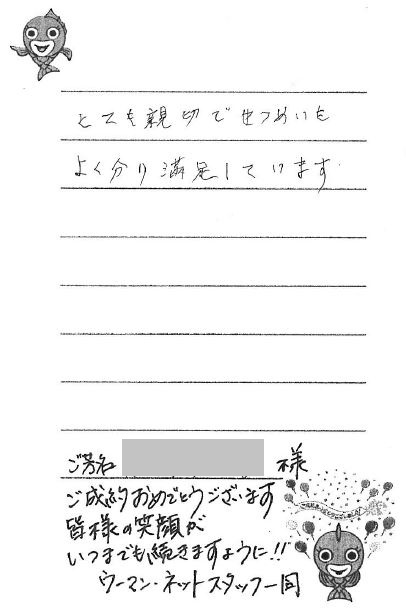 とても親切でせつめいも
よく分り満足しています
ご芳名 様
ご成約おめでとうございます
皆様の笑顔が
いつまでも続きますように!!
ウーマン・ネットスタッフ一同